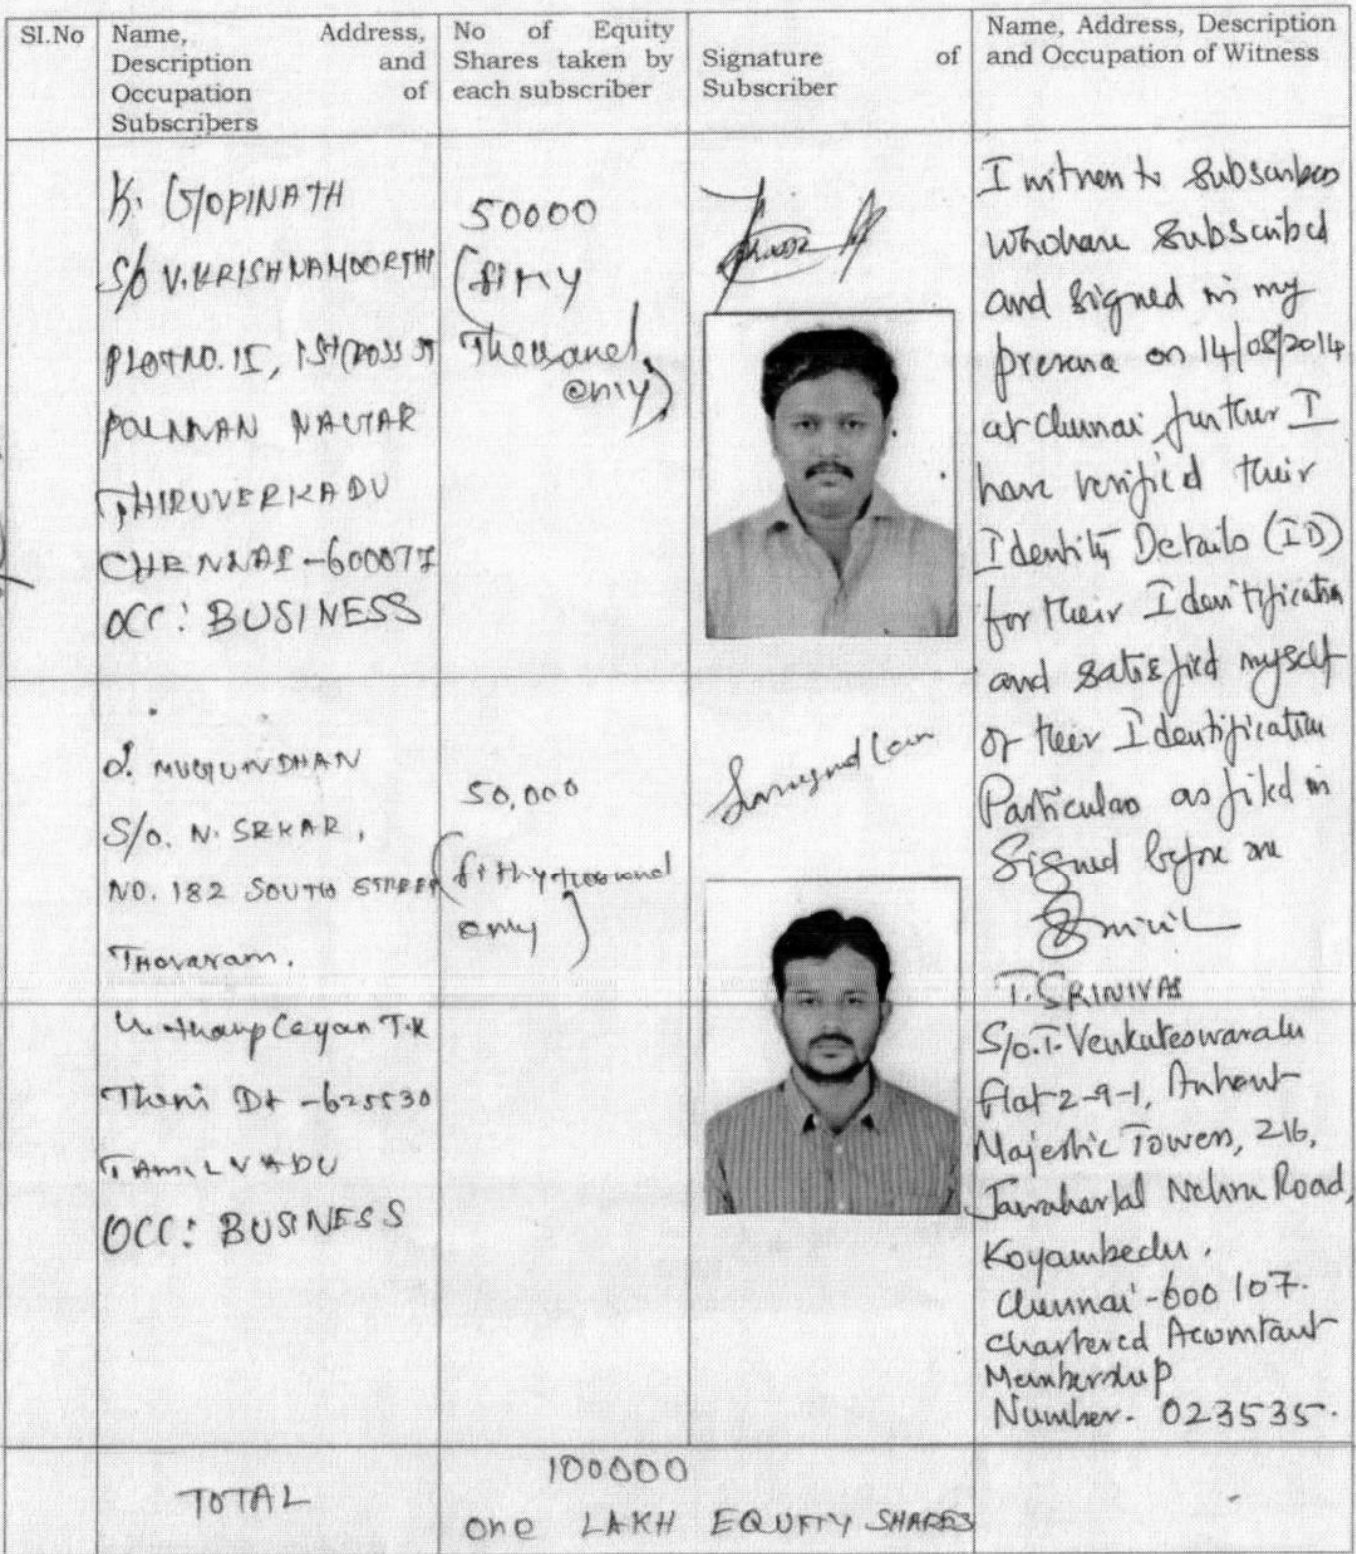 Sl.No
Name, Address,
Description and
Occupation of
Subscribers
No of Equity
Shares taken by
each subscriber
Signature of
Subscriber
Name, Address, Description
and Occupation of Witness
K. GOPINATH
S/o V. KRISHNAMOORTHI
PLOT NO. 15, 1ST CROSS ST
NAGAR
THIRUVERKADU
CHENNAI - 600077
OCC: BUSINESS
50000
(fifty
Thousand
only)
I witness to Subscribers
who have Subscribed
and signed in my
presence on 14/08/2014
at Chennai, further I
have verified their
Identity Details (ID)
for their Identification
and satisfied myself
of their Identification
Particulars as filed in
Signed before me
T. SRINIVAS
S/o. T. Venkateswaralu
flat 2-9-1,
Majestic Towers, 216,
Jawaharlal Nehru Road,
Koyambedu.
Chennai - 600 107.
Chartered Accountant
Membership
Number. 023535.
S. MUGUNDHAN
S/o. N. SEKAR,
NO. 182 SOUTH STREET
Thevaram.
T.K
Theni Dt - 625530
TAMILNADU
OCC: BUSINESS
50,000
(fifty thousand
only)
TOTAL
100000
one LAKH EQUITY SHARES